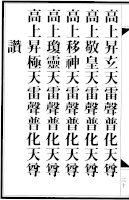 高上昇玄天雷聲普化天尊
高上敬皇天雷聲普化天尊
高上移神天雷聲普化天尊
高上瓊靈天雷聲普化天尊
高上昇極天雷聲普化天尊
讚